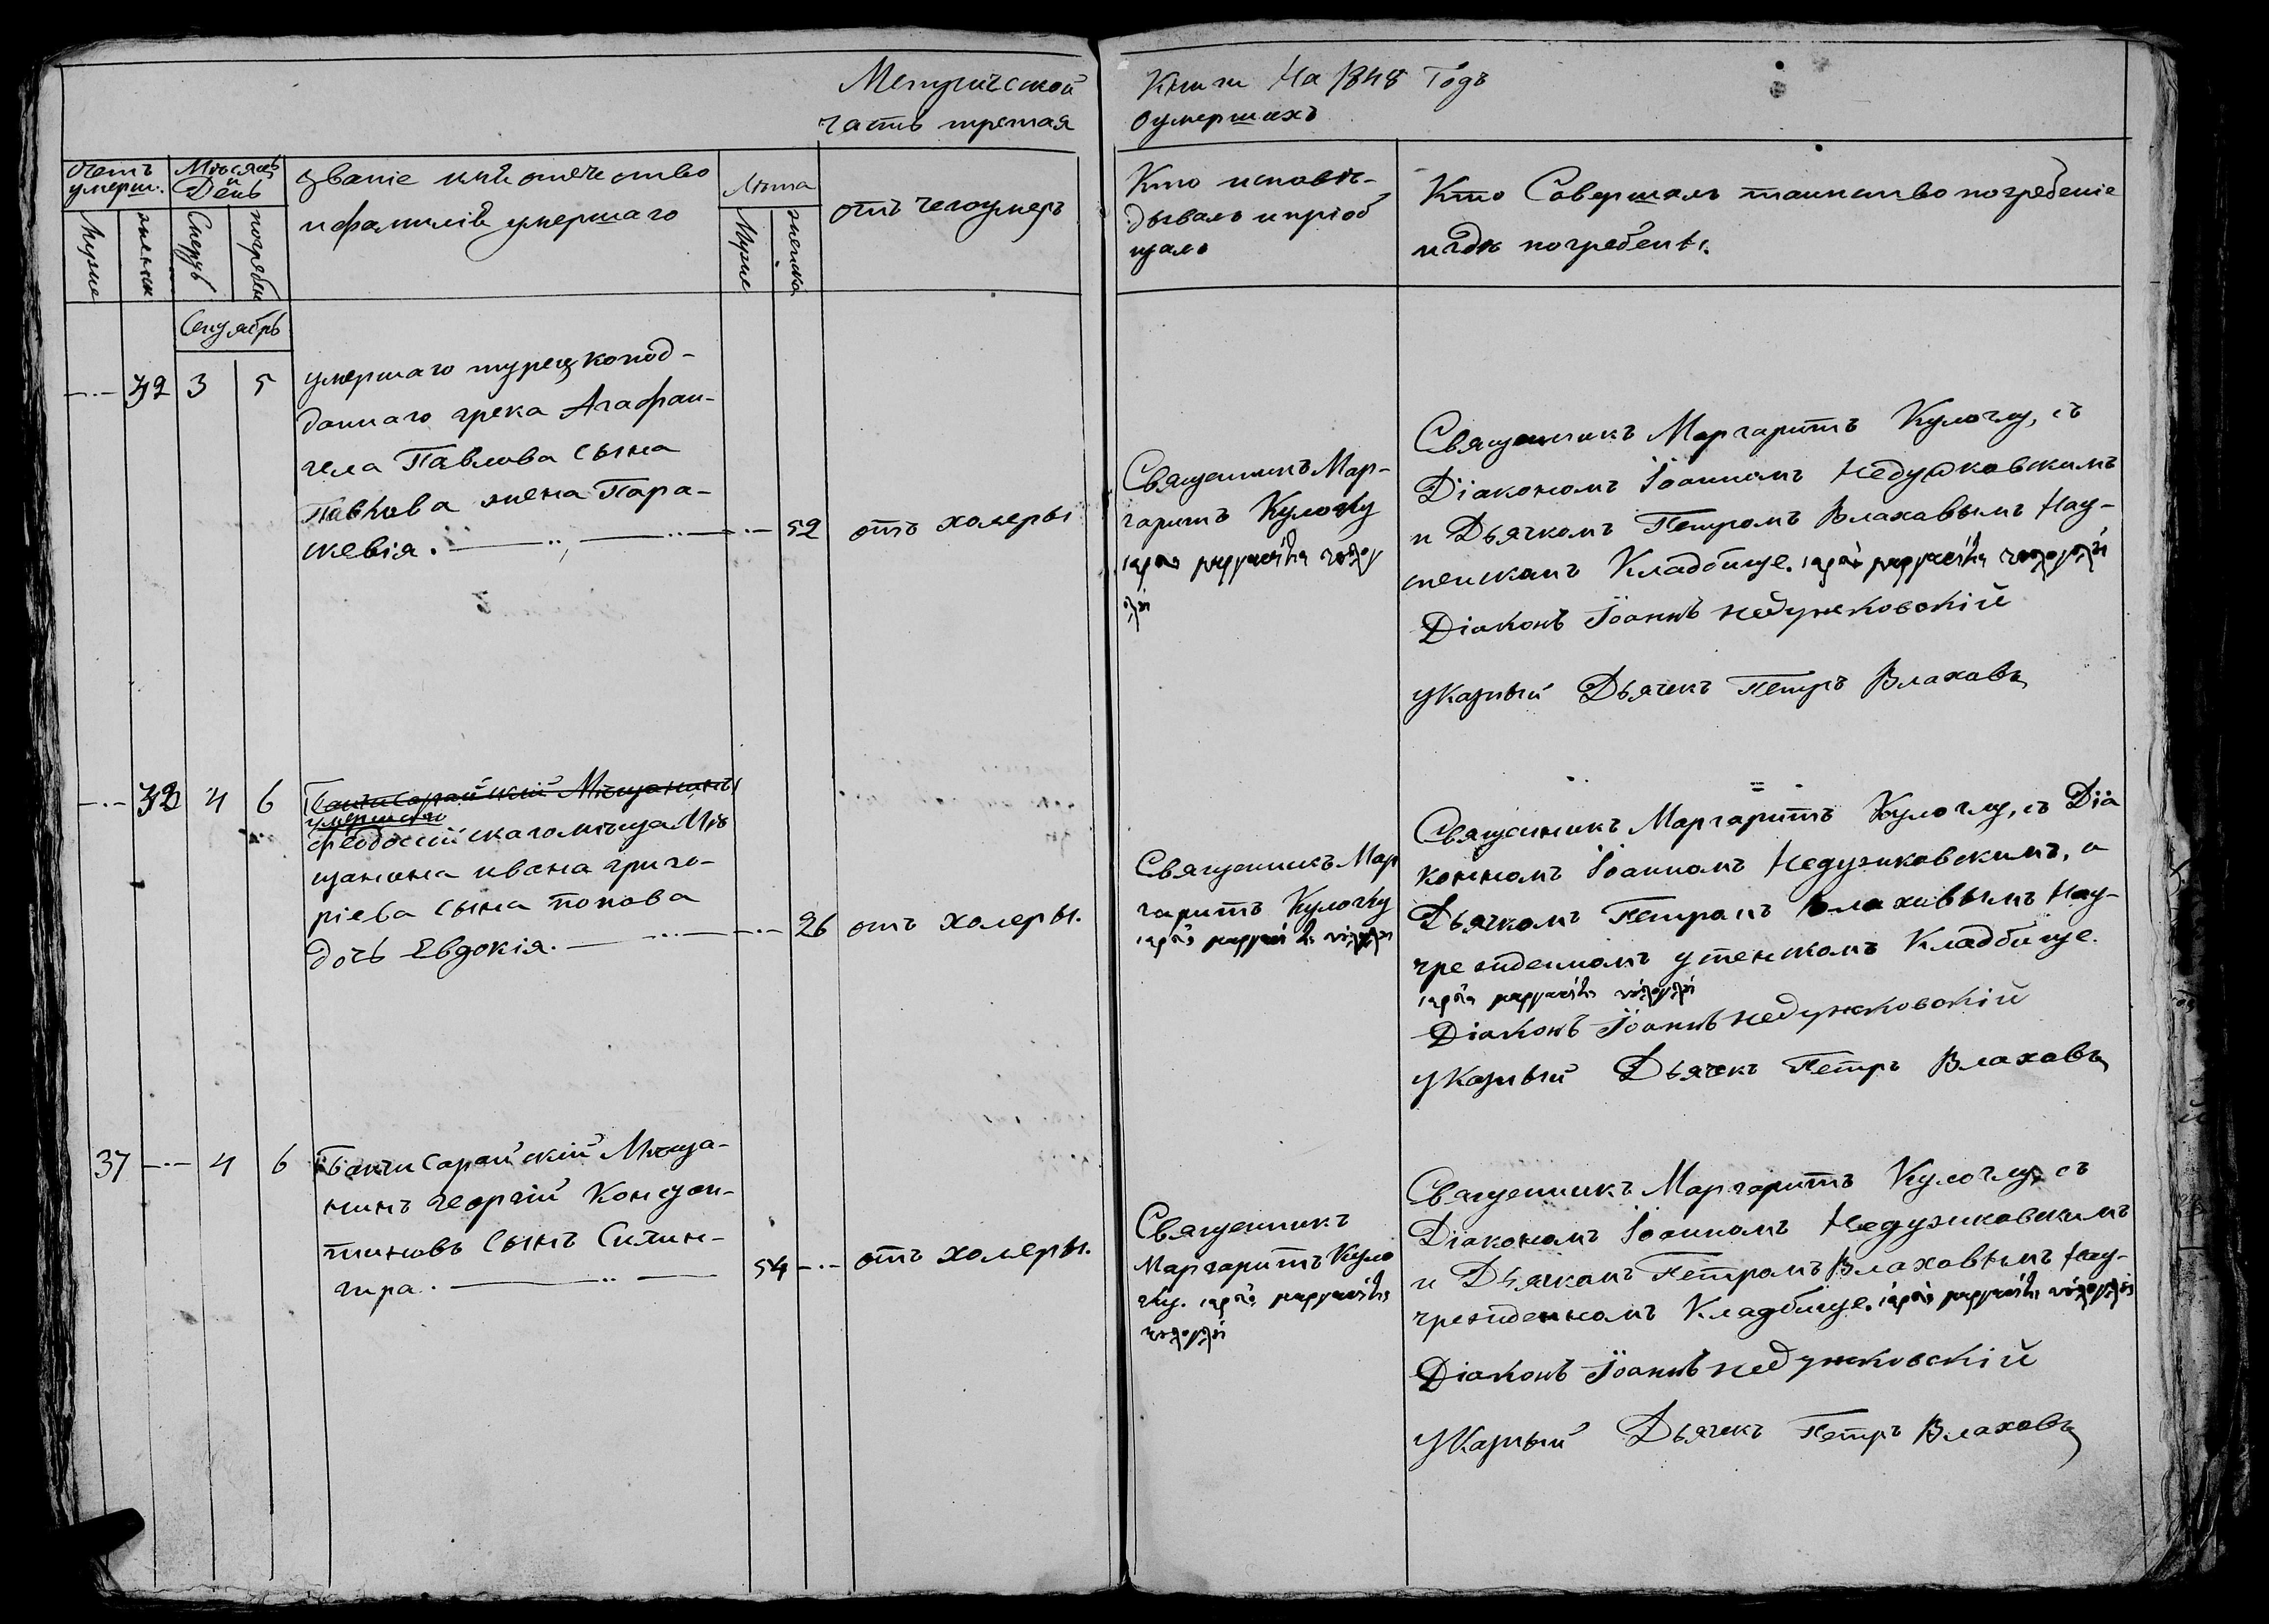 Метрической Книги На 1848 Годъ
часть третая оумершихъ
Счетъ умерш.
Мѣсяцъ и День
званіе имя отечество
и фамилія умершаго
Лѣта
отъ чегоумеръ
Кто исповѣ-
дывалъ и пріоб
щалъ
Кто Совершалъ таинство погребеніе
и гдѣ погребены.
Мужие
женск
Смерть
погребен
Мужие
женска
Сентябрь
32 3 5
умершаго турецкопод-
даннаго грека Агафан-
гела Павлова сына
Павлова жена Пара-
скевія.
52
отъ холеры
Священникъ Мар-
гаритъ Кулоглу
Священникъ Маргаритъ Кулоглу, съ
Діакономъ Іоанномъ Недужковскимъ
и Дьячкомъ Петромъ Влаховымъ На у-
тенскомъ Кладбище.
Діаконъ Іоаннъ недужковскій
указный Дьячекъ Петръ Влаховъ
4 6
Бахчисарайскій Мѣщанинъ
умершаго
феодосійскагомѣща Мѣ
щанина ивана григо-
ріева сына попова
дочь Евдокія.
26
отъ холеры.
Священникъ Мар
гаритъ Кулоглу
Священникъ Маргаритъ Кулоглу, съ Діа
кономъ Іоанномъ Недужковскимъ, и
Дьячкомъ Петромъ Влаховымъ На у-
чрежденномъ утенскомъ Кладбище.
Діаконъ Іоаннъ недужковскій
указный Дьячекъ Петръ Влаховъ
37 4 6
Бахчисарайскій Мѣща-
нинъ георгій Констан-
тиновъ сынъ
54
отъ холеры.
Священникъ
Маргаритъ Куло
глу.
Священникъ Маргаритъ Кулоглу, съ
Діакономъ Іоанномъ Недужковскимъ
и Дьячкомъ Петромъ Влаховымъ На у-
чрежденномъ Кладбище.
Діаконъ Іоаннъ недужковскій
указный Дьячекъ Петръ Влаховъ